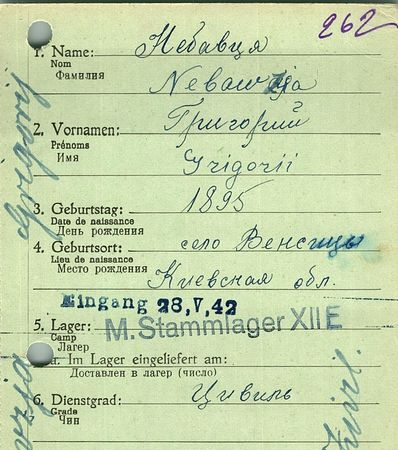 262
1. Name: Небавця
Nom
Фамилия
2. Vornamen: Григорий
Prénoms
Имя Grigorii
3. Geburtstag: 1895
Date de naissance
День рождения
4. Geburtsort: село
Lieu de naissance
Место рождения
Киевская обл.
Eingang 28,V,42
5. Lager: M.Stammlager XII E
Camp
Лагер
a. Im Lager eingeliefert am:
Доставлен в лагер (число)
6. Dienstgrad: Цивиль
Grade
Чин
Grigorij
Zivil.